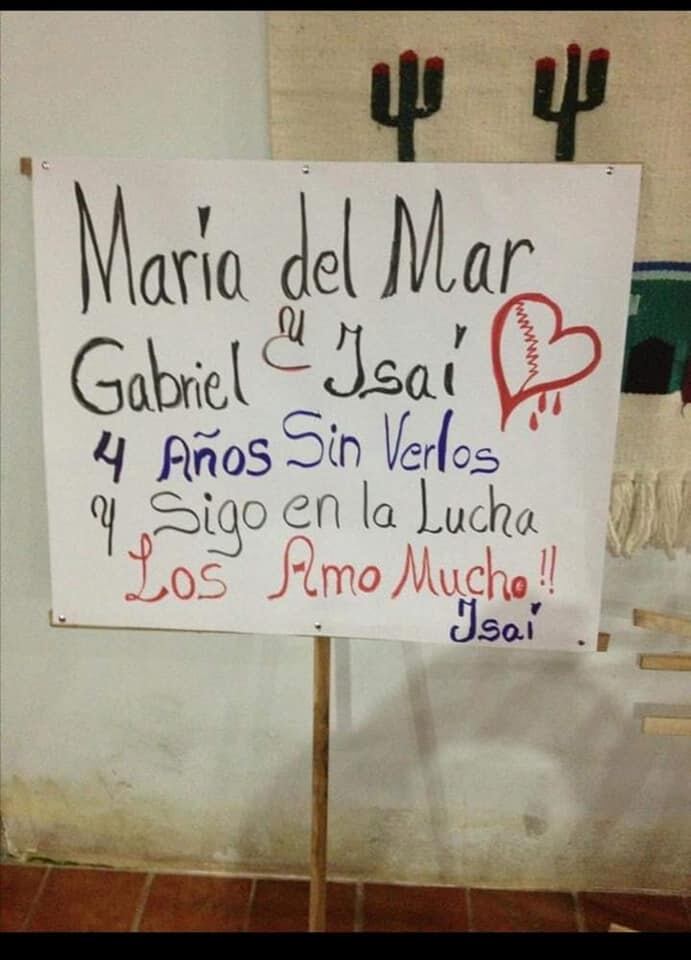 María del Mar
Gabriel y Isaí
4 Años Sin Verlos
y Sigo en la Lucha
Los Amo Mucho!!
Isaí